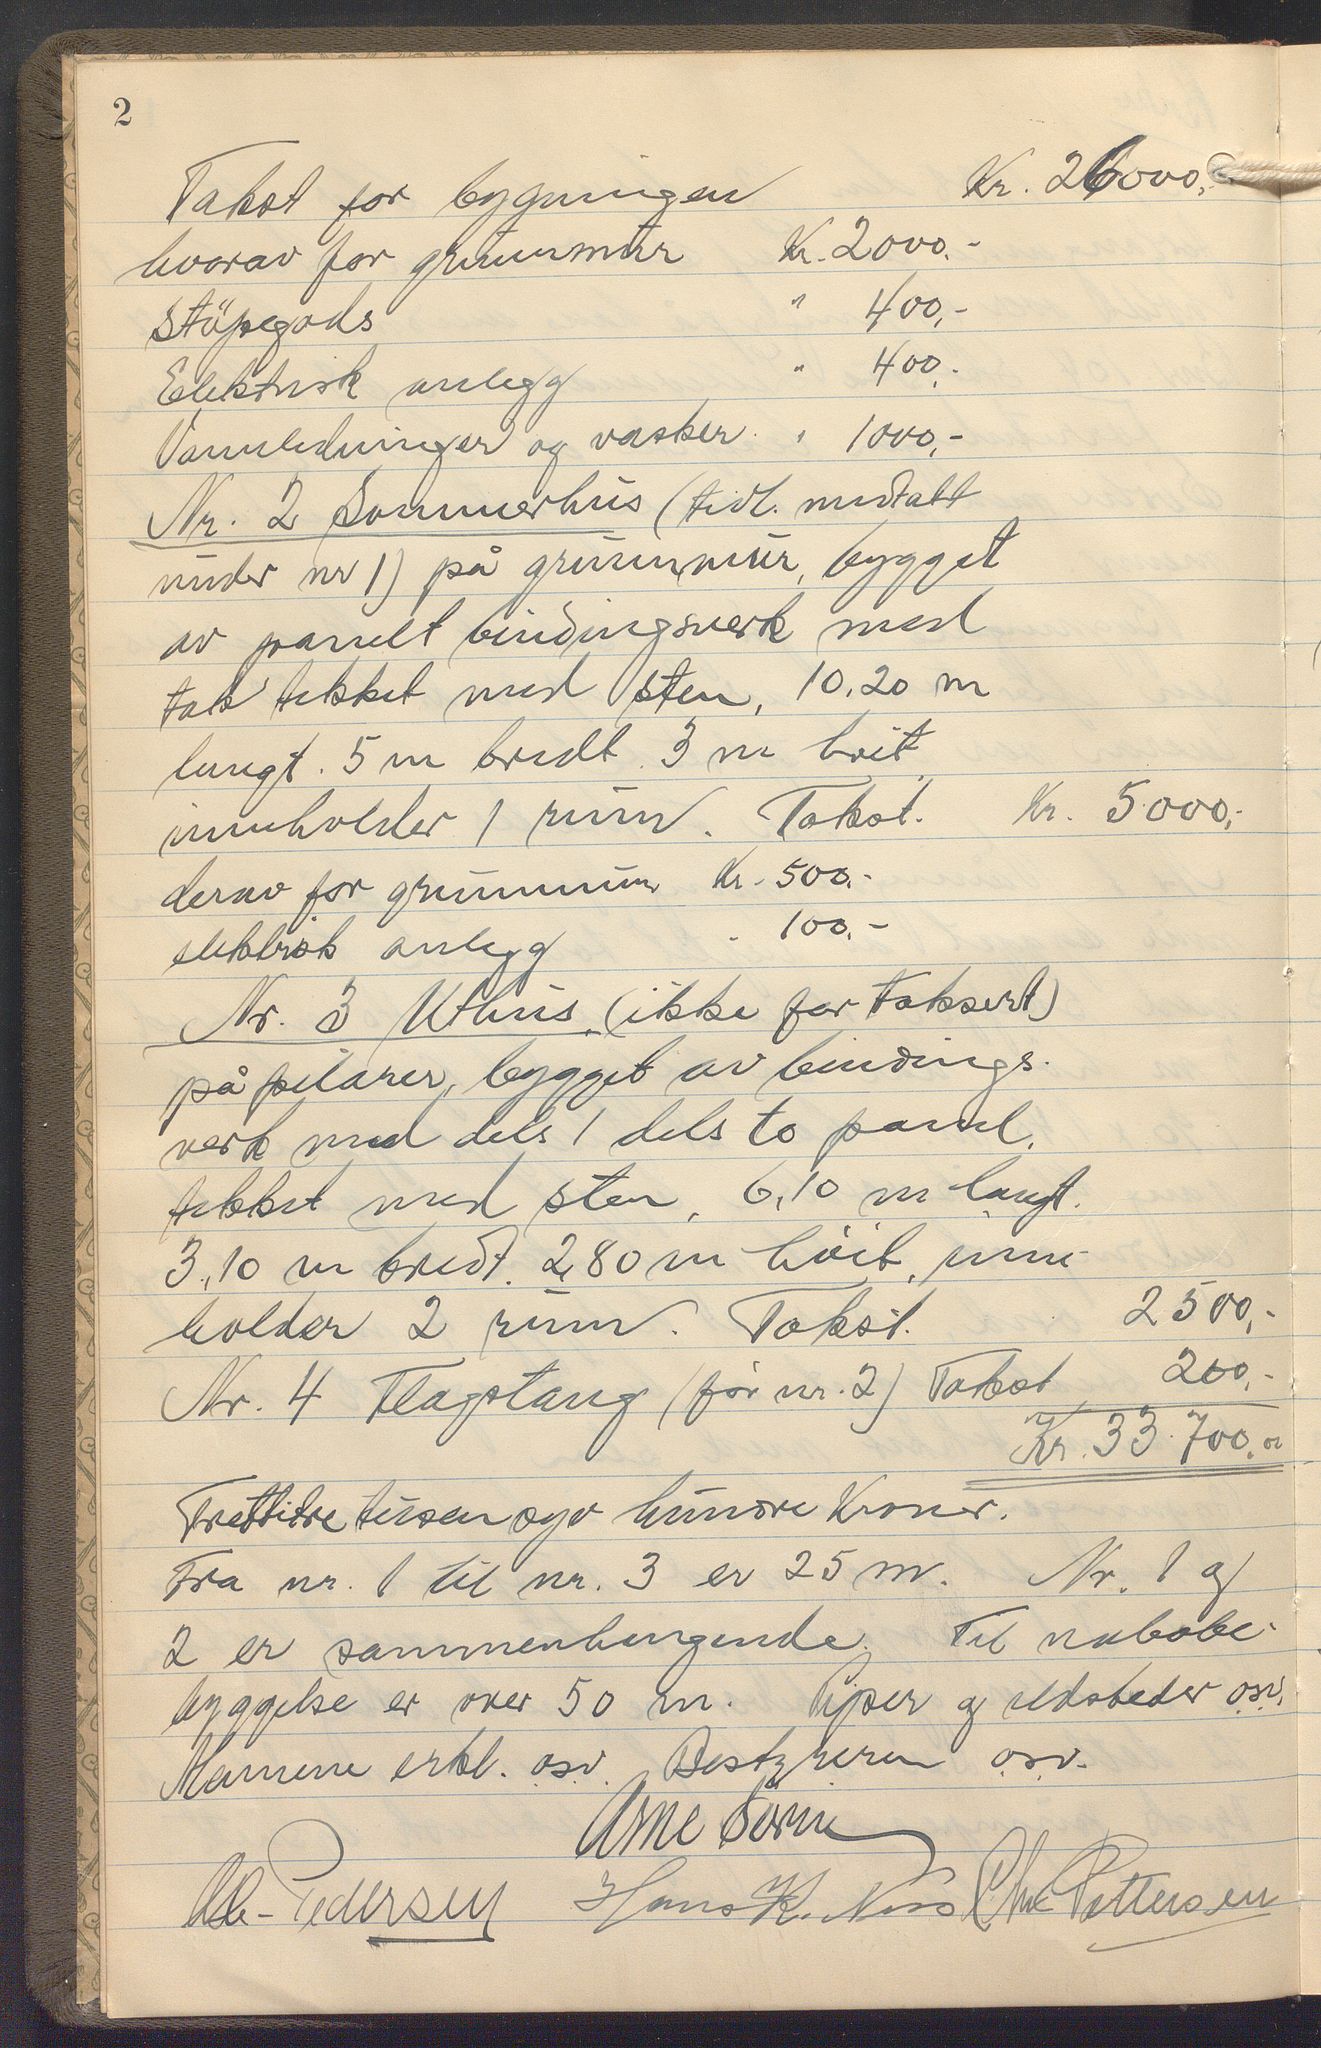 2
Takst for bygningen Kr. 26000,-
hvorav for grunnmur Kr. 2000.-
Stöpegods " 400,-
Elektrisk anlegg " 400,-
Vannledninger og vasker " 1000,-
Nr. 2 Sommerhus (tidl. medtatt
under nr 1) på grunnmur, bygget
av panelt bindingsverk med
tak tekket med sten, 10,20 m
langt. 5 m bredt. 3 m höit,
inneholder 1 rum. Takst. Kr. 5000,-
derav for grunnmur Kr. 500.-
elektrisk anlegg " 100.-
Nr. 3 Uthus (ikke för taksert)
på pilarer, bygget av bindings-
verk med dels 1 dels to panel,
tekket med sten, 6,10 m langt.
3,10 m bredt. 2,80 m höit, inne-
holder 2 rum. Takst. 2500,-
Nr. 4 Flagstang (för nr. 2) Takst 200,-
Kr. 33.700.-
Trettitre tusen syv hundre Kroner.
Fra nr. 1 til nr. 3 er 25 m. Nr. 1 og
2 er sammenhengende. Til nabobe-
byggelse er over 50 m. Piper og ildsteder osv.
Mennene erkl. osv. Bestyreren osv.
Arne
Pedersen Hans K. Chr. Pettersen